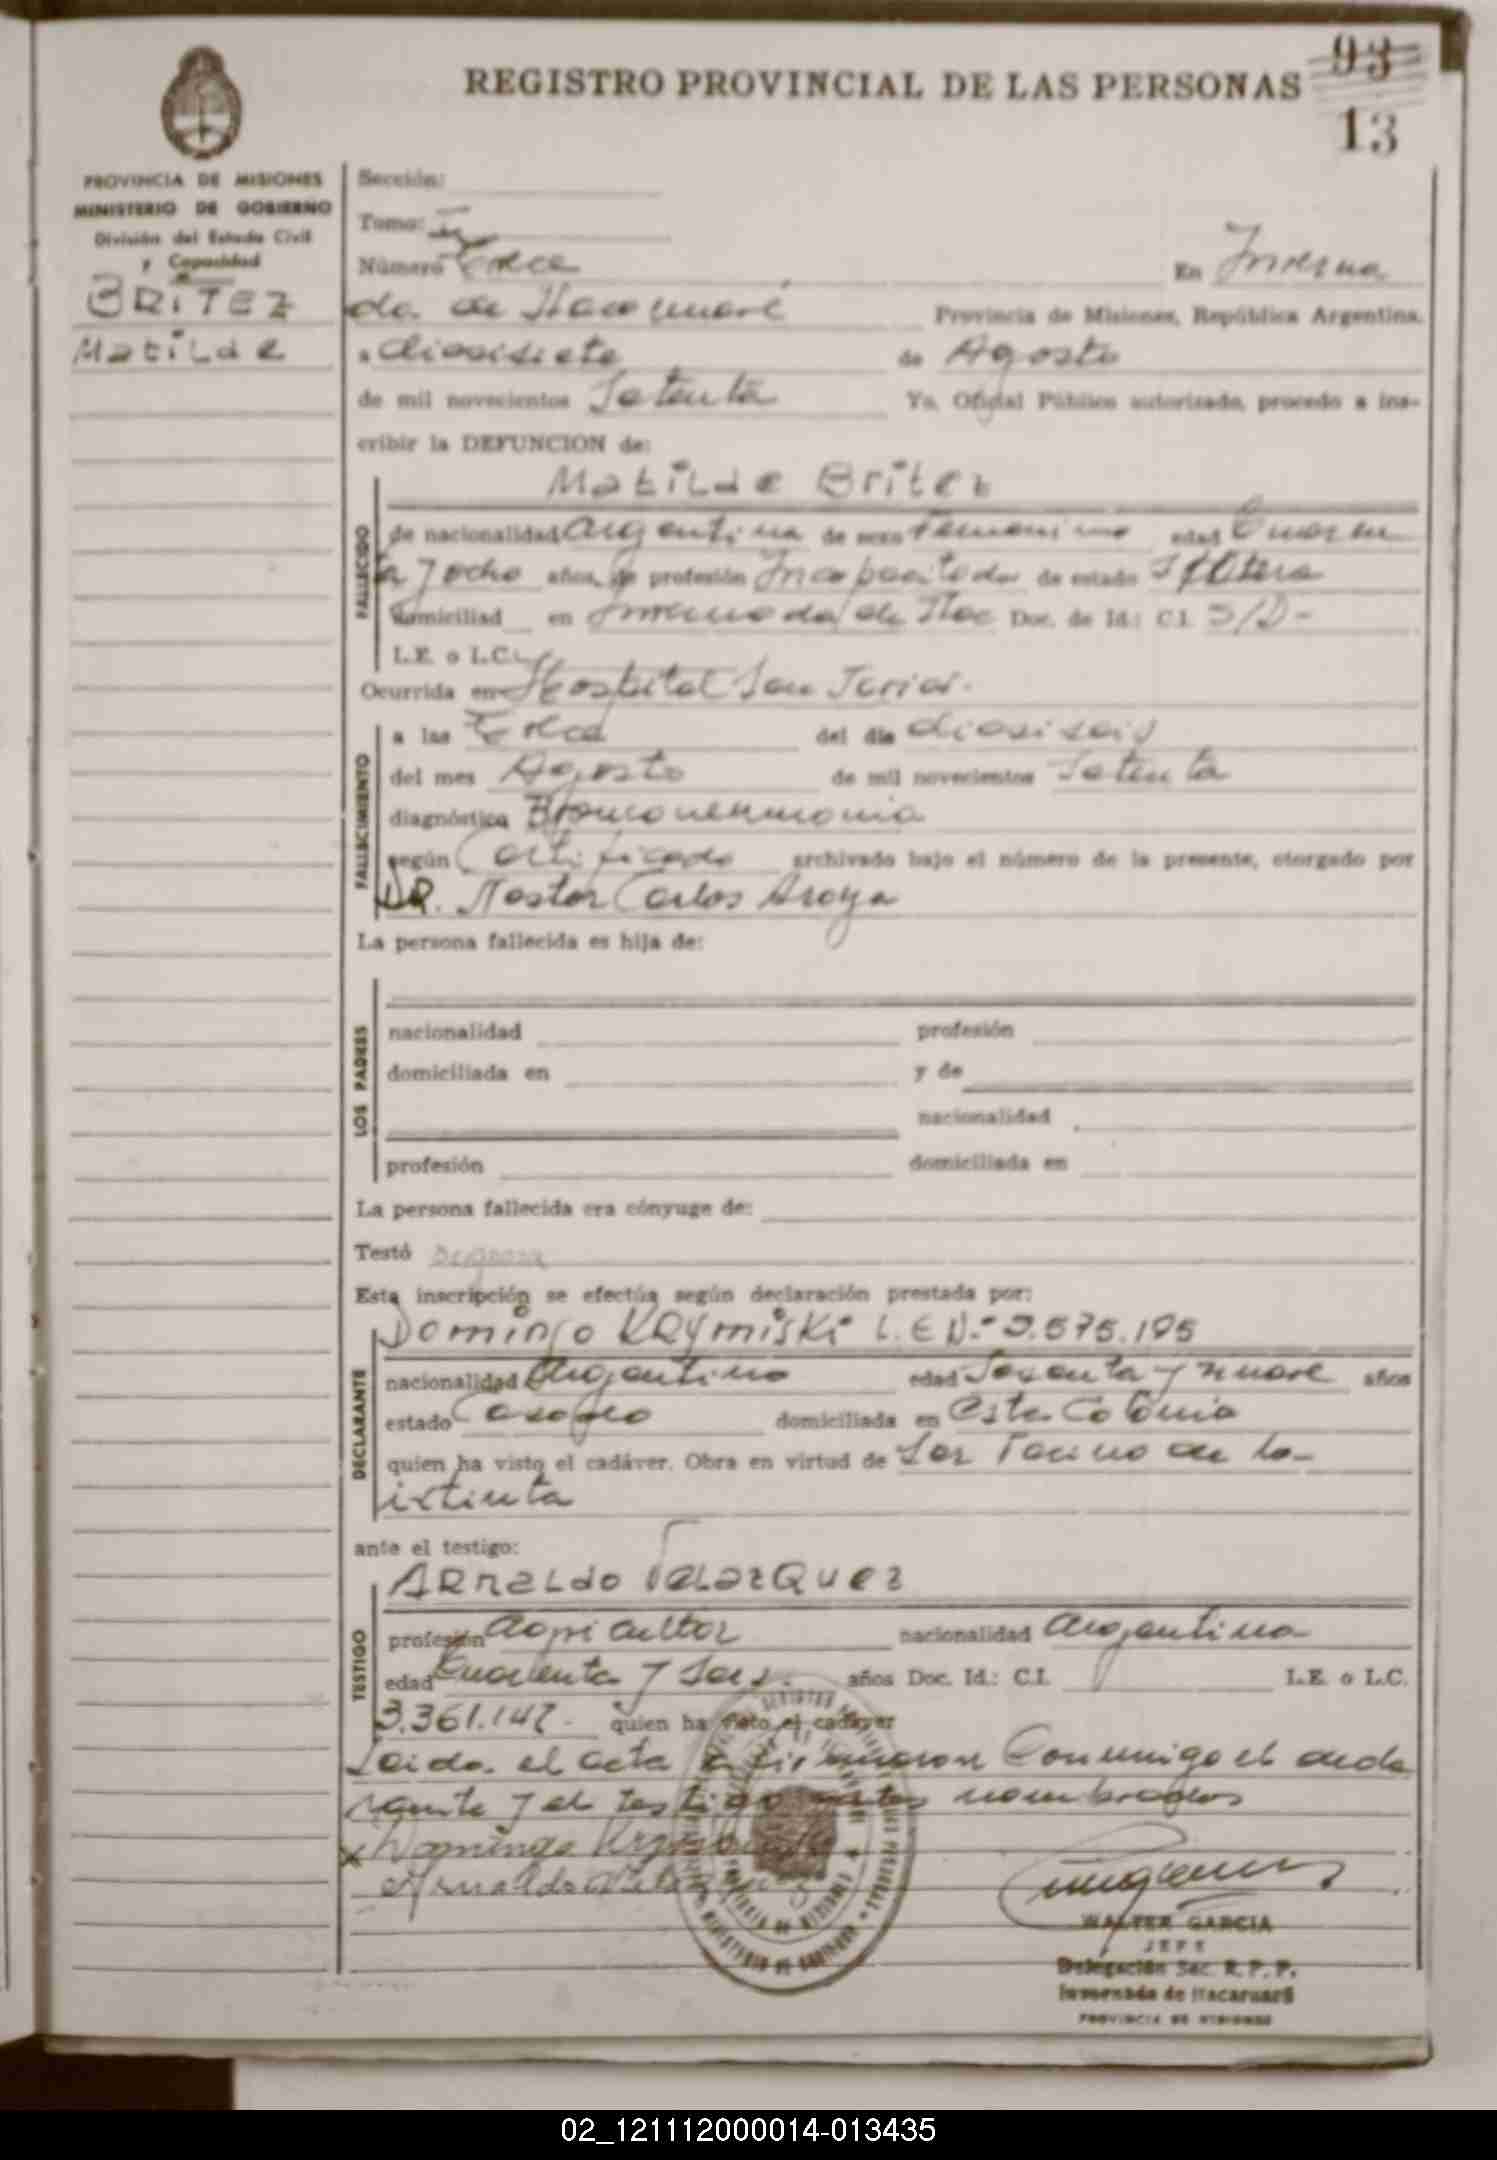 93
REGISTRO PROVINCIAL DE LAS PERSONAS
13
PROVINCIA DE MISIONES
MINISTERIO DE GOBIERNO
División del Estado Civil
y Capacidad
BRITEZ
Matilde
Sección:
Tomo: I
Número Trece En Inverna
da de Itacaruaré Provincia de Misiones, República Argentina,
a diecisiete de Agosto
de mil novecientos Setenta Yo, Oficial Público autorizado, procedo a ins-
cribir la DEFUNCION de:
FALLECIDO
Matilde Britez
de nacionalidad Argentina de sexo Femenino edad Cuaren
ta y ocho años, de profesión Incapacitada de estado Soltera
domiciliad en Invernada de Itac Doc. de Id.: C.I. S/D-
L.E. o L.C.
Ocurrida en Hospital San Javier.
FALLECIMIENTO
a las Trece del día dieciseis
del mes Agosto de mil novecientos Setenta
diagnóstico Bronconeumonia
según Certificado archivado bajo el número de la presente, otorgado por
DR. Nestor Carlos Aroya
La persona fallecida es hija de:
LOS PADRES
nacionalidad profesión
domiciliada en y de
nacionalidad
profesión domiciliada en
La persona fallecida era cónyuge de:
Testó
Esta inscripción se efectúa según declaración prestada por:
DECLARANTE
Domingo KRYmiski L.E N.º 3.575.195
nacionalidad Argentino edad Sesenta y nueve años
estado Casado domiciliada en esta Colonia
quien ha visto el cadáver. Obra en virtud de Ser Vecino de la
extinta
ante el testigo:
TESTIGO
ARnaLdo VeLazQuez
profesión Agricultor nacionalidad Argentina
edad Cuarenta y Seis. años Doc. Id.: C.I. L.E. o L.C.
3.361.147. quien ha visto el cadáver
Leida el acta la firmaron Conmigo el decla
rante y el testigo antes nombrados
x Domingo
Arnaldo
WALTER GARCIA
JEFE
Delegación Sec. R. P. P.
Invernada de Itacaruaré
PROVINCIA DE MISIONES
02_121112000014-013435